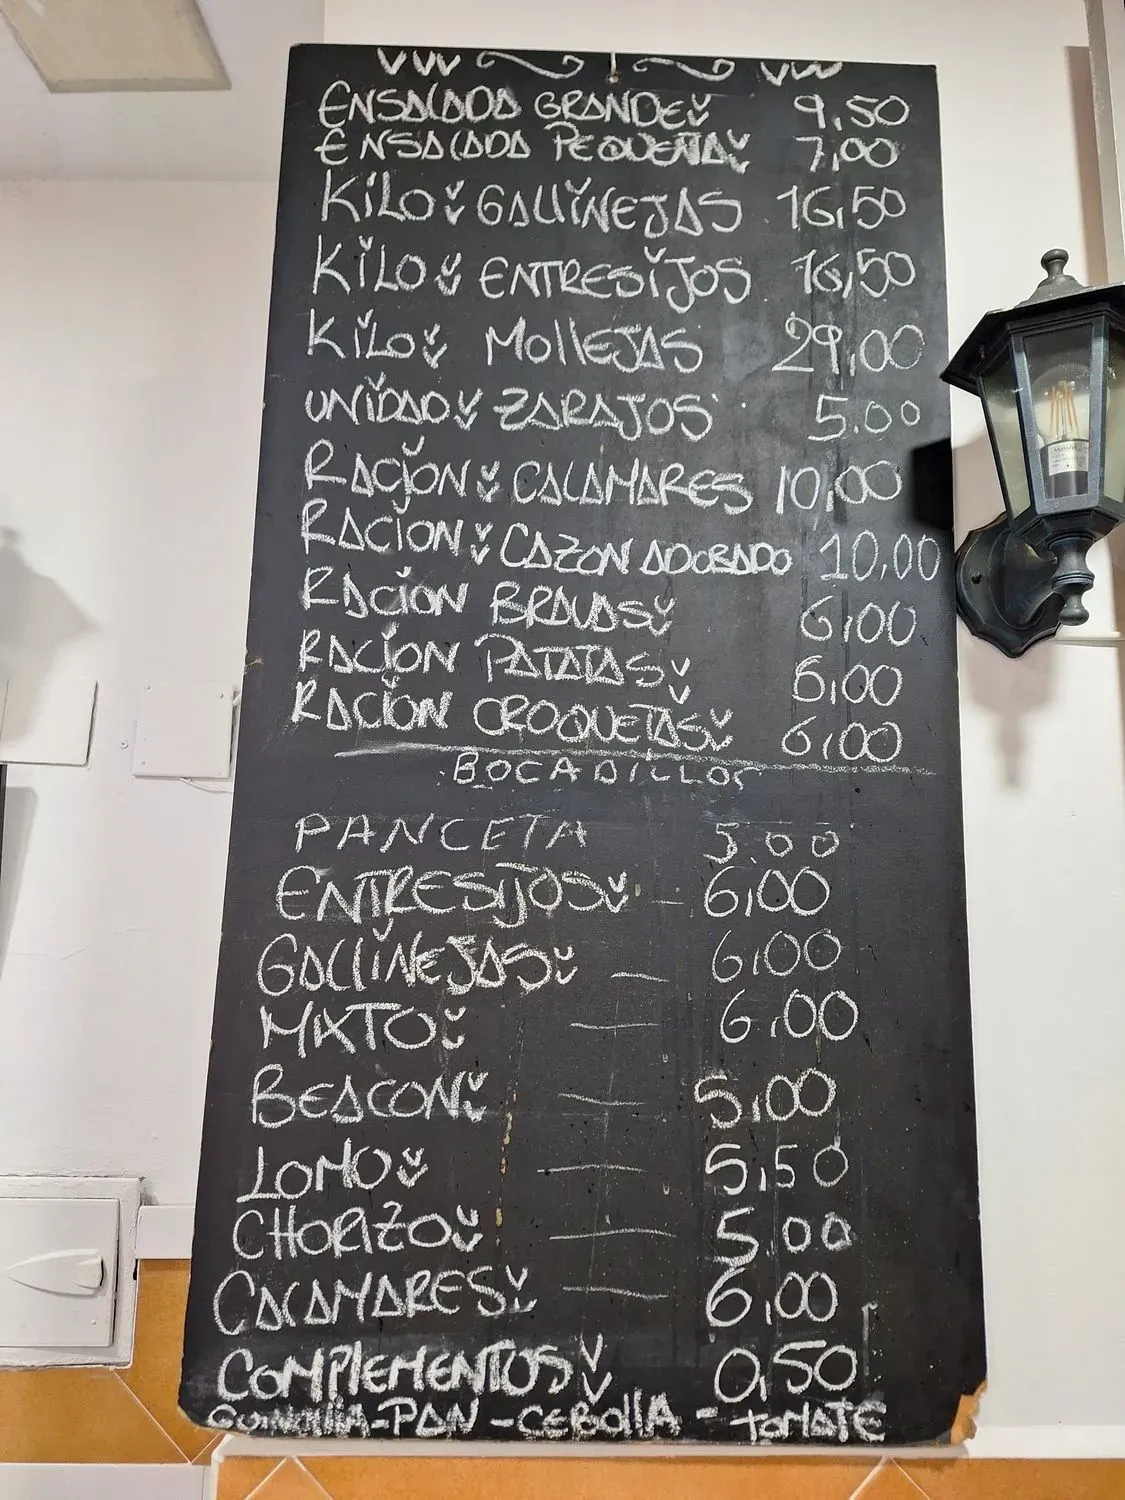 ENSALADA GRANDE 9,50
ENSALADA PEQUEÑA 7,00
KILO GALLINEJAS 16,50
KILO ENTRESIJOS 16,50
KILO MOLLEJAS 29,00
UNIDAD ZARAJOS 5.00
RACION CALAMARES 10,00
RACION CAZON ADOBADO 10,00
RACION BRAVAS 6,00
RACION PATATAS 6,00
RACION CROQUETAS 6,00
BOCADILLOS
PANCETA 5.00
ENTRESIJOS - 6,00
GALLINEJAS - 6,00
MIXTO - 6,00
BEACON - 5,00
LOMO - 5,50
CHORIZO - 5,00
CALAMARES - 6,00
COMPLEMENTOS 0,50
GUINDILLA-PAN-CEBOLLA-TOMATE